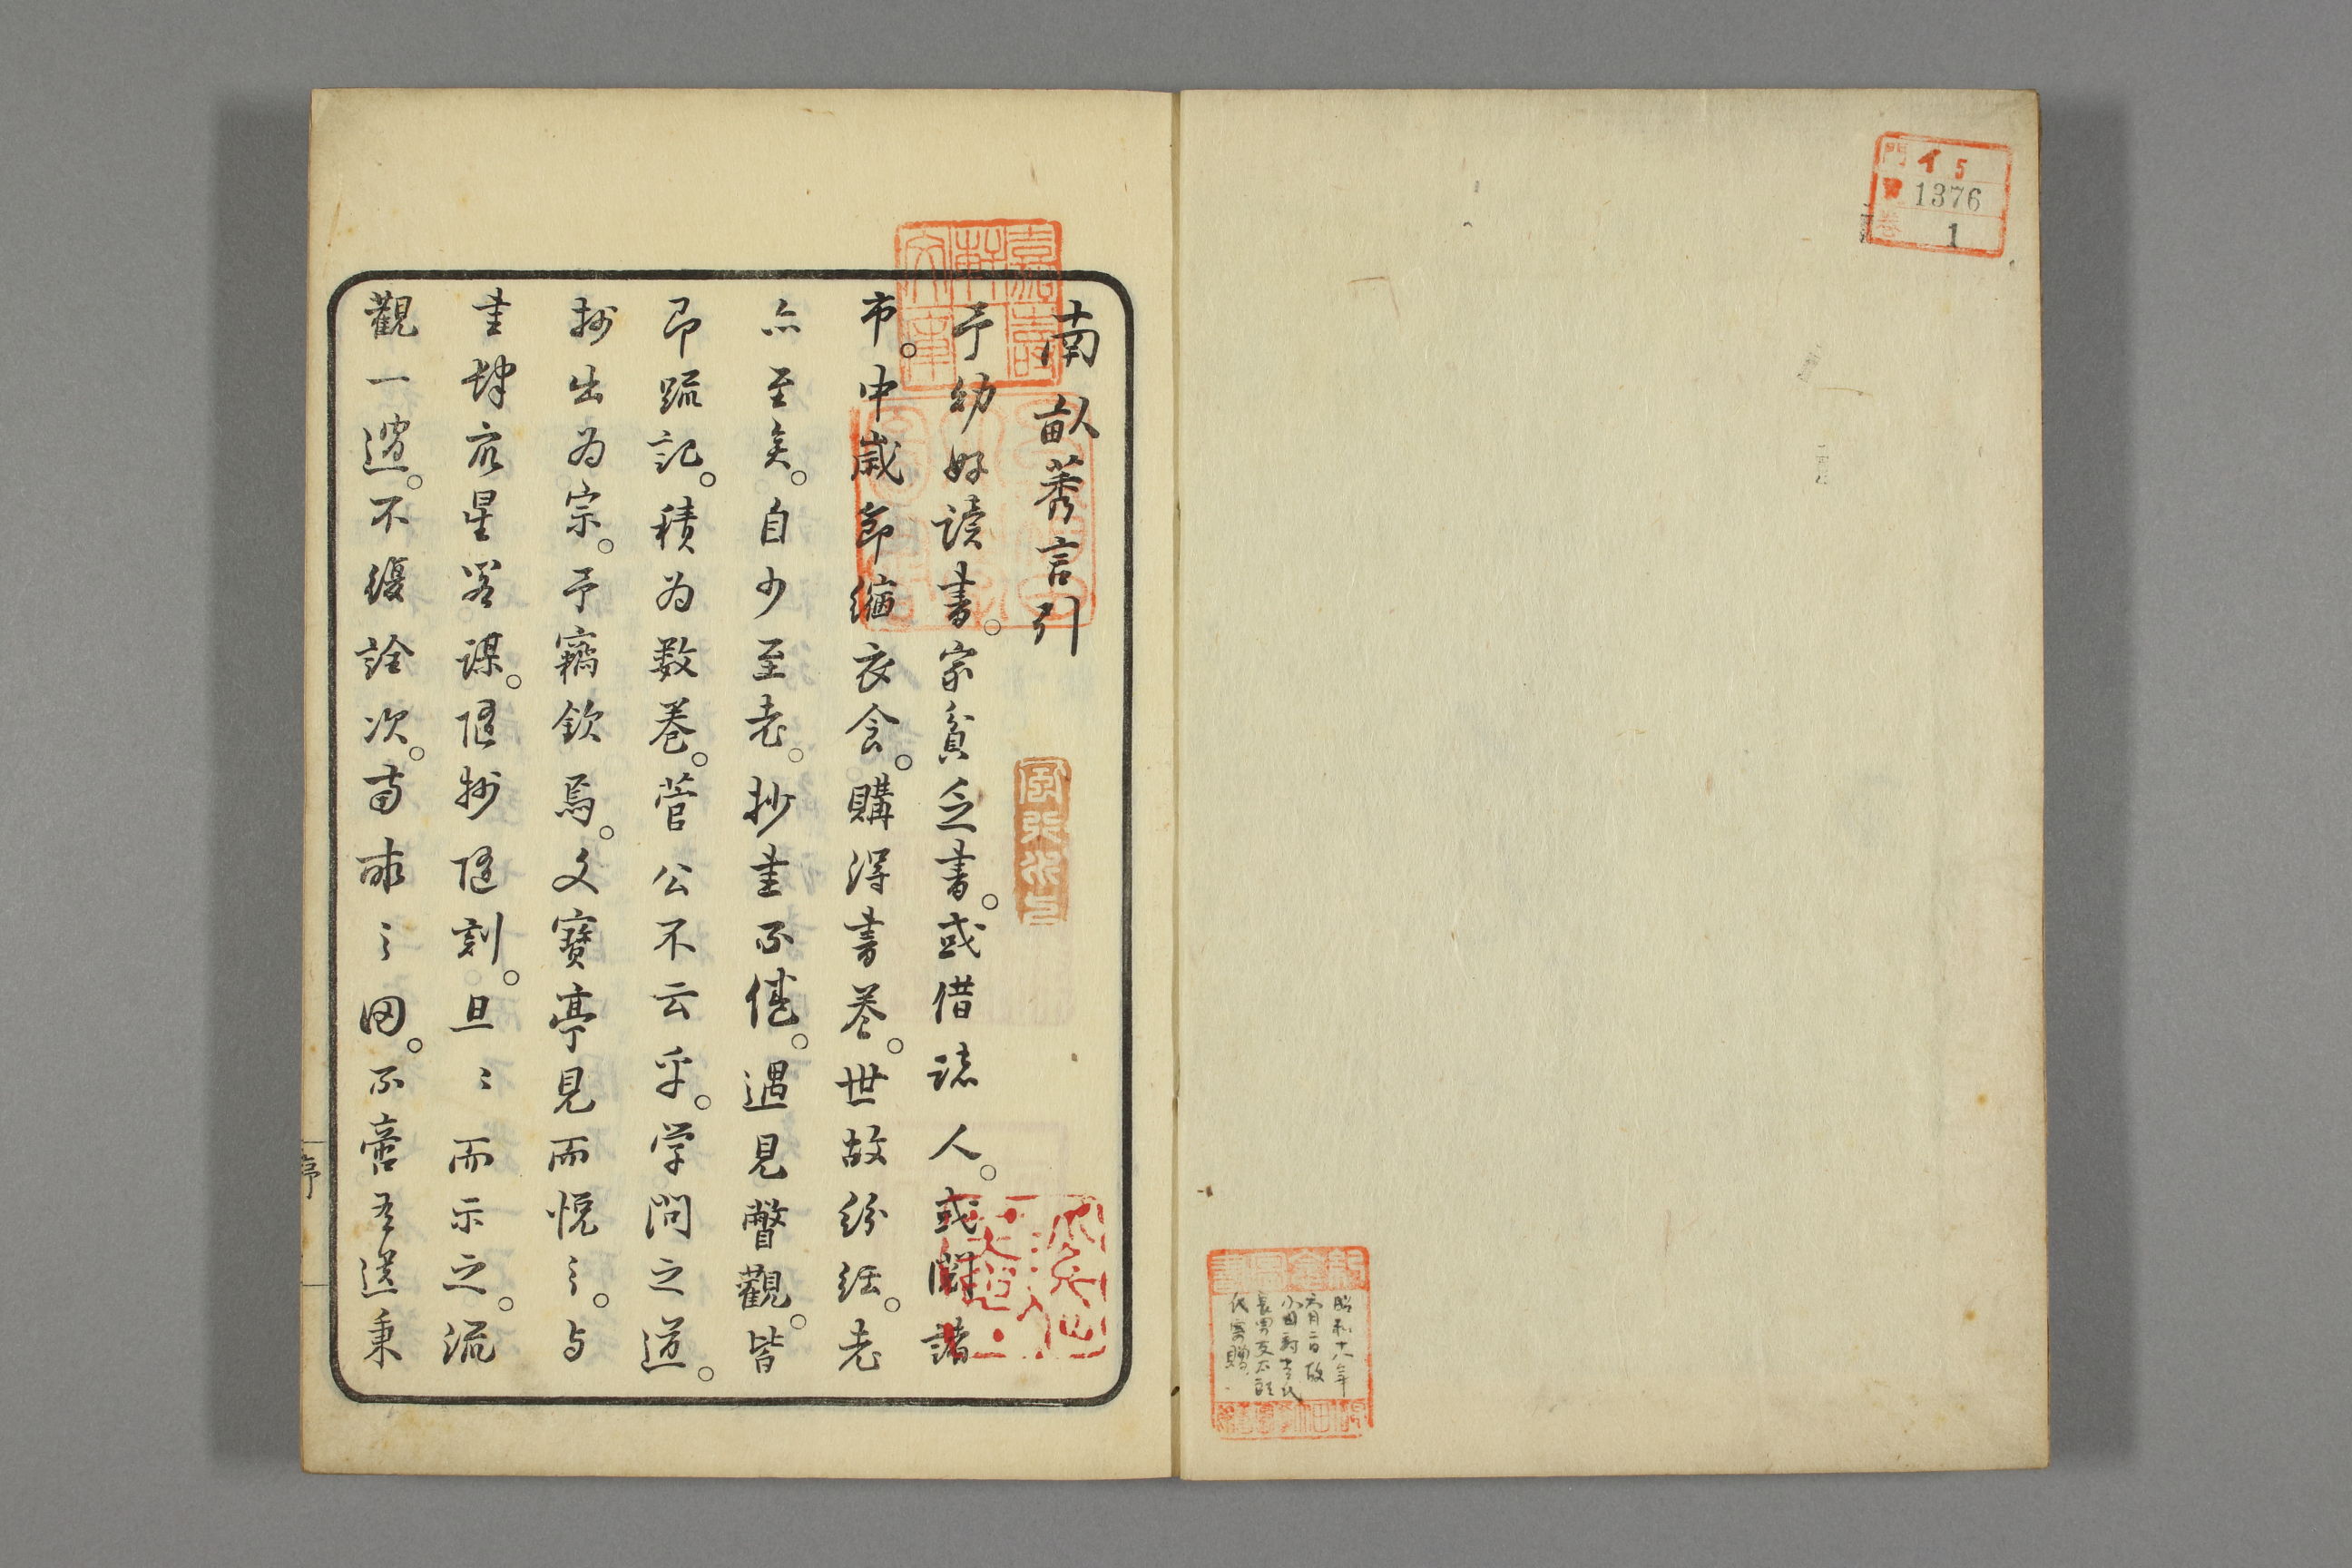 門 イ 5
1376
卷 1
昭和十八年
六月二日故
小田
長男
氏寄贈
南畝莠言引
予幼好読書。家貧乏書。或借諸人。或閲諸
市。中歳節縮衣食。購得書巻。世故紛紜。老
亦至矣。自少至老。抄書不倦。遇見瞥觀。皆
即疏記。積為数巻。菅公不云乎。学問之道。
抄出為宗。予竊欽焉。文寶亭見而悦之。与
書肆衆星客謀。随抄随刻。旦〻而示之。流
觀一過。不復詮次。南畝之田。不啻有送秉
序
嘉壽軒文庫